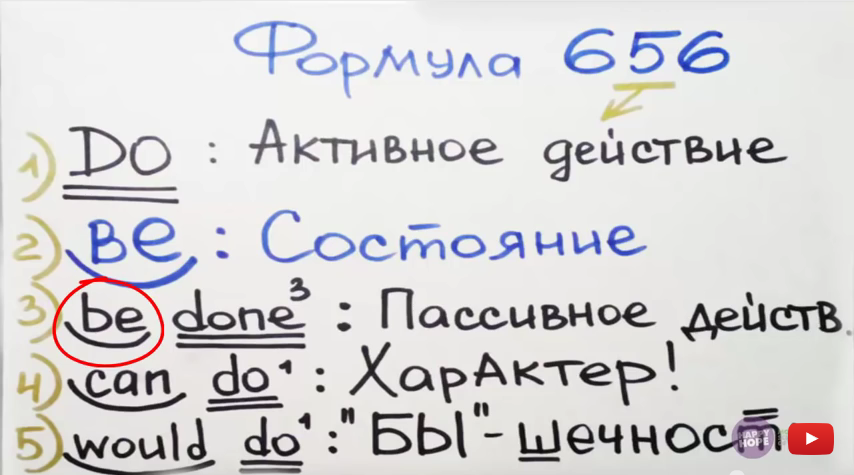 Формула 656
1) DO : Активное действие
2) BE : Состояние
3) be done³ : Пассивное действ.
4) can do¹ : Характер!
5) would do¹ : "БЫ" - шечность
HAPPY
HOPE